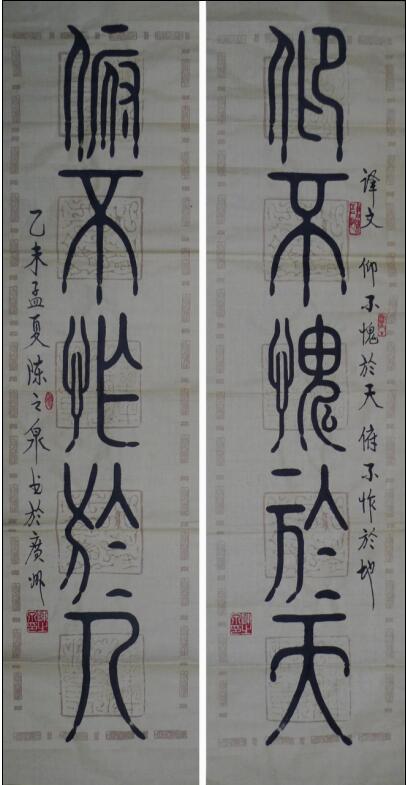 译文 仰不愧於天 俯不怍於地
仰不愧於天
俯不怍於人
乙未孟夏陈之泉书於廣州